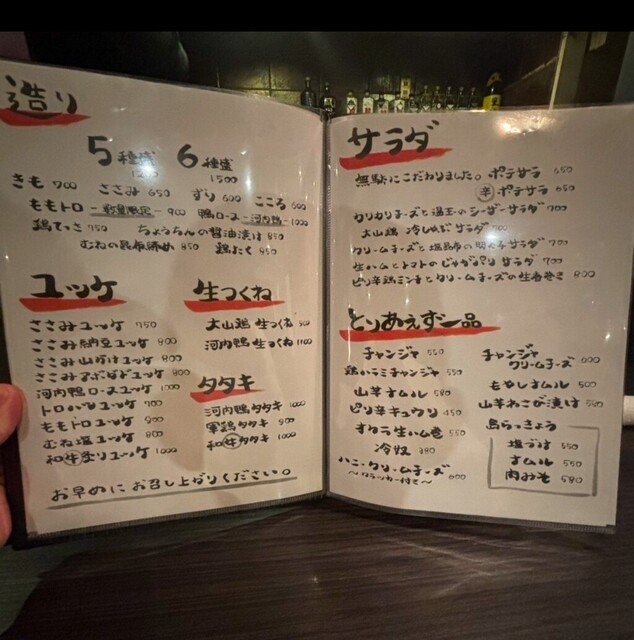 造り
5種盛 6種盛
1500
きも 700 ささみ 650 ずり 600 こころ 600
ももトロ -数量限定- 900 鴨ロース -河内鴨- 1000
鶏てっさ 750 ちょうちんの醤油漬け 850
むねの昆布締め 850 鶏たく 850
ユッケ
ささみユッケ 750
ささみ納豆ユッケ 800
ささみ山かけユッケ 800
ささみアボカドユッケ 800
河内鴨ロースユッケ 1000
トロハツユッケ 700
ももトロユッケ 900
むね塩ユッケ 800
和牛生リユッケ 1000
生つくね
大山鶏 生つくね 900
河内鴨 生つくね 1100
タタキ
河内鴨タタキ 1000
軍鶏タタキ 900
和牛タタキ 1000
お早めにお召し上がりください。
サラダ
無駄にこだわりました。ポテサラ 650
辛ポテサラ 650
カリカリチーズと温玉のシーザーサラダ 700
大山鶏 冷しゃぶサラダ 700
クリームチーズと塩昆布の サラダ 700
生ハムとトマトのじゃがバリサラダ 700
ピリ辛鶏ミンチとクリームチーズの生春巻き 800
とりあえず一品
チャンジャ 550
鶏ハラミチャンジャ 550
山芋ナムル 580
ピリ辛キュウリ 450
オクラ生ハム巻 550
冷奴 380
ハニークリームチーズ 600
〜クラッカー付き〜
チャンジャ
クリームチーズ 600
もやしナムル 500
山芋わさび漬け 550
島らっきょう
塩づけ 550
ナムル 550
肉みそ 580